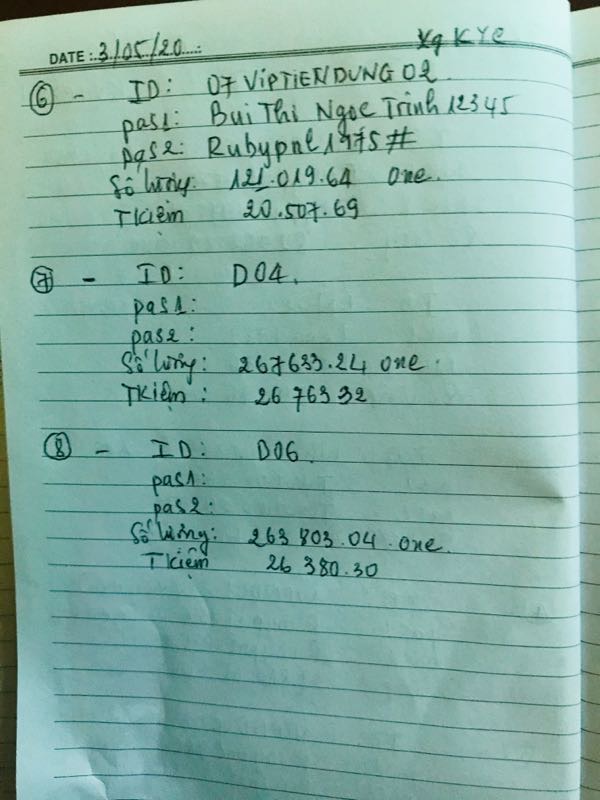 Xg KYC
DATE : 3/05/20
⑥ - ID: 07 VIPTIENDUNG 02
pas1: Bui Thi Ngoc Trinh 12345
pas2: Rubypnl1975#
Số lượng: 121.019.64 one.
Tkiệm 20.507.69
⑦ - ID: D04.
pas1:
pas2:
Số lượng: 267633.24 one.
TKiệm : 26 763 32
⑧ - ID: D06.
pas1:
pas2:
Số lượng: 263 803.04 one.
Tkiệm 26 380.30